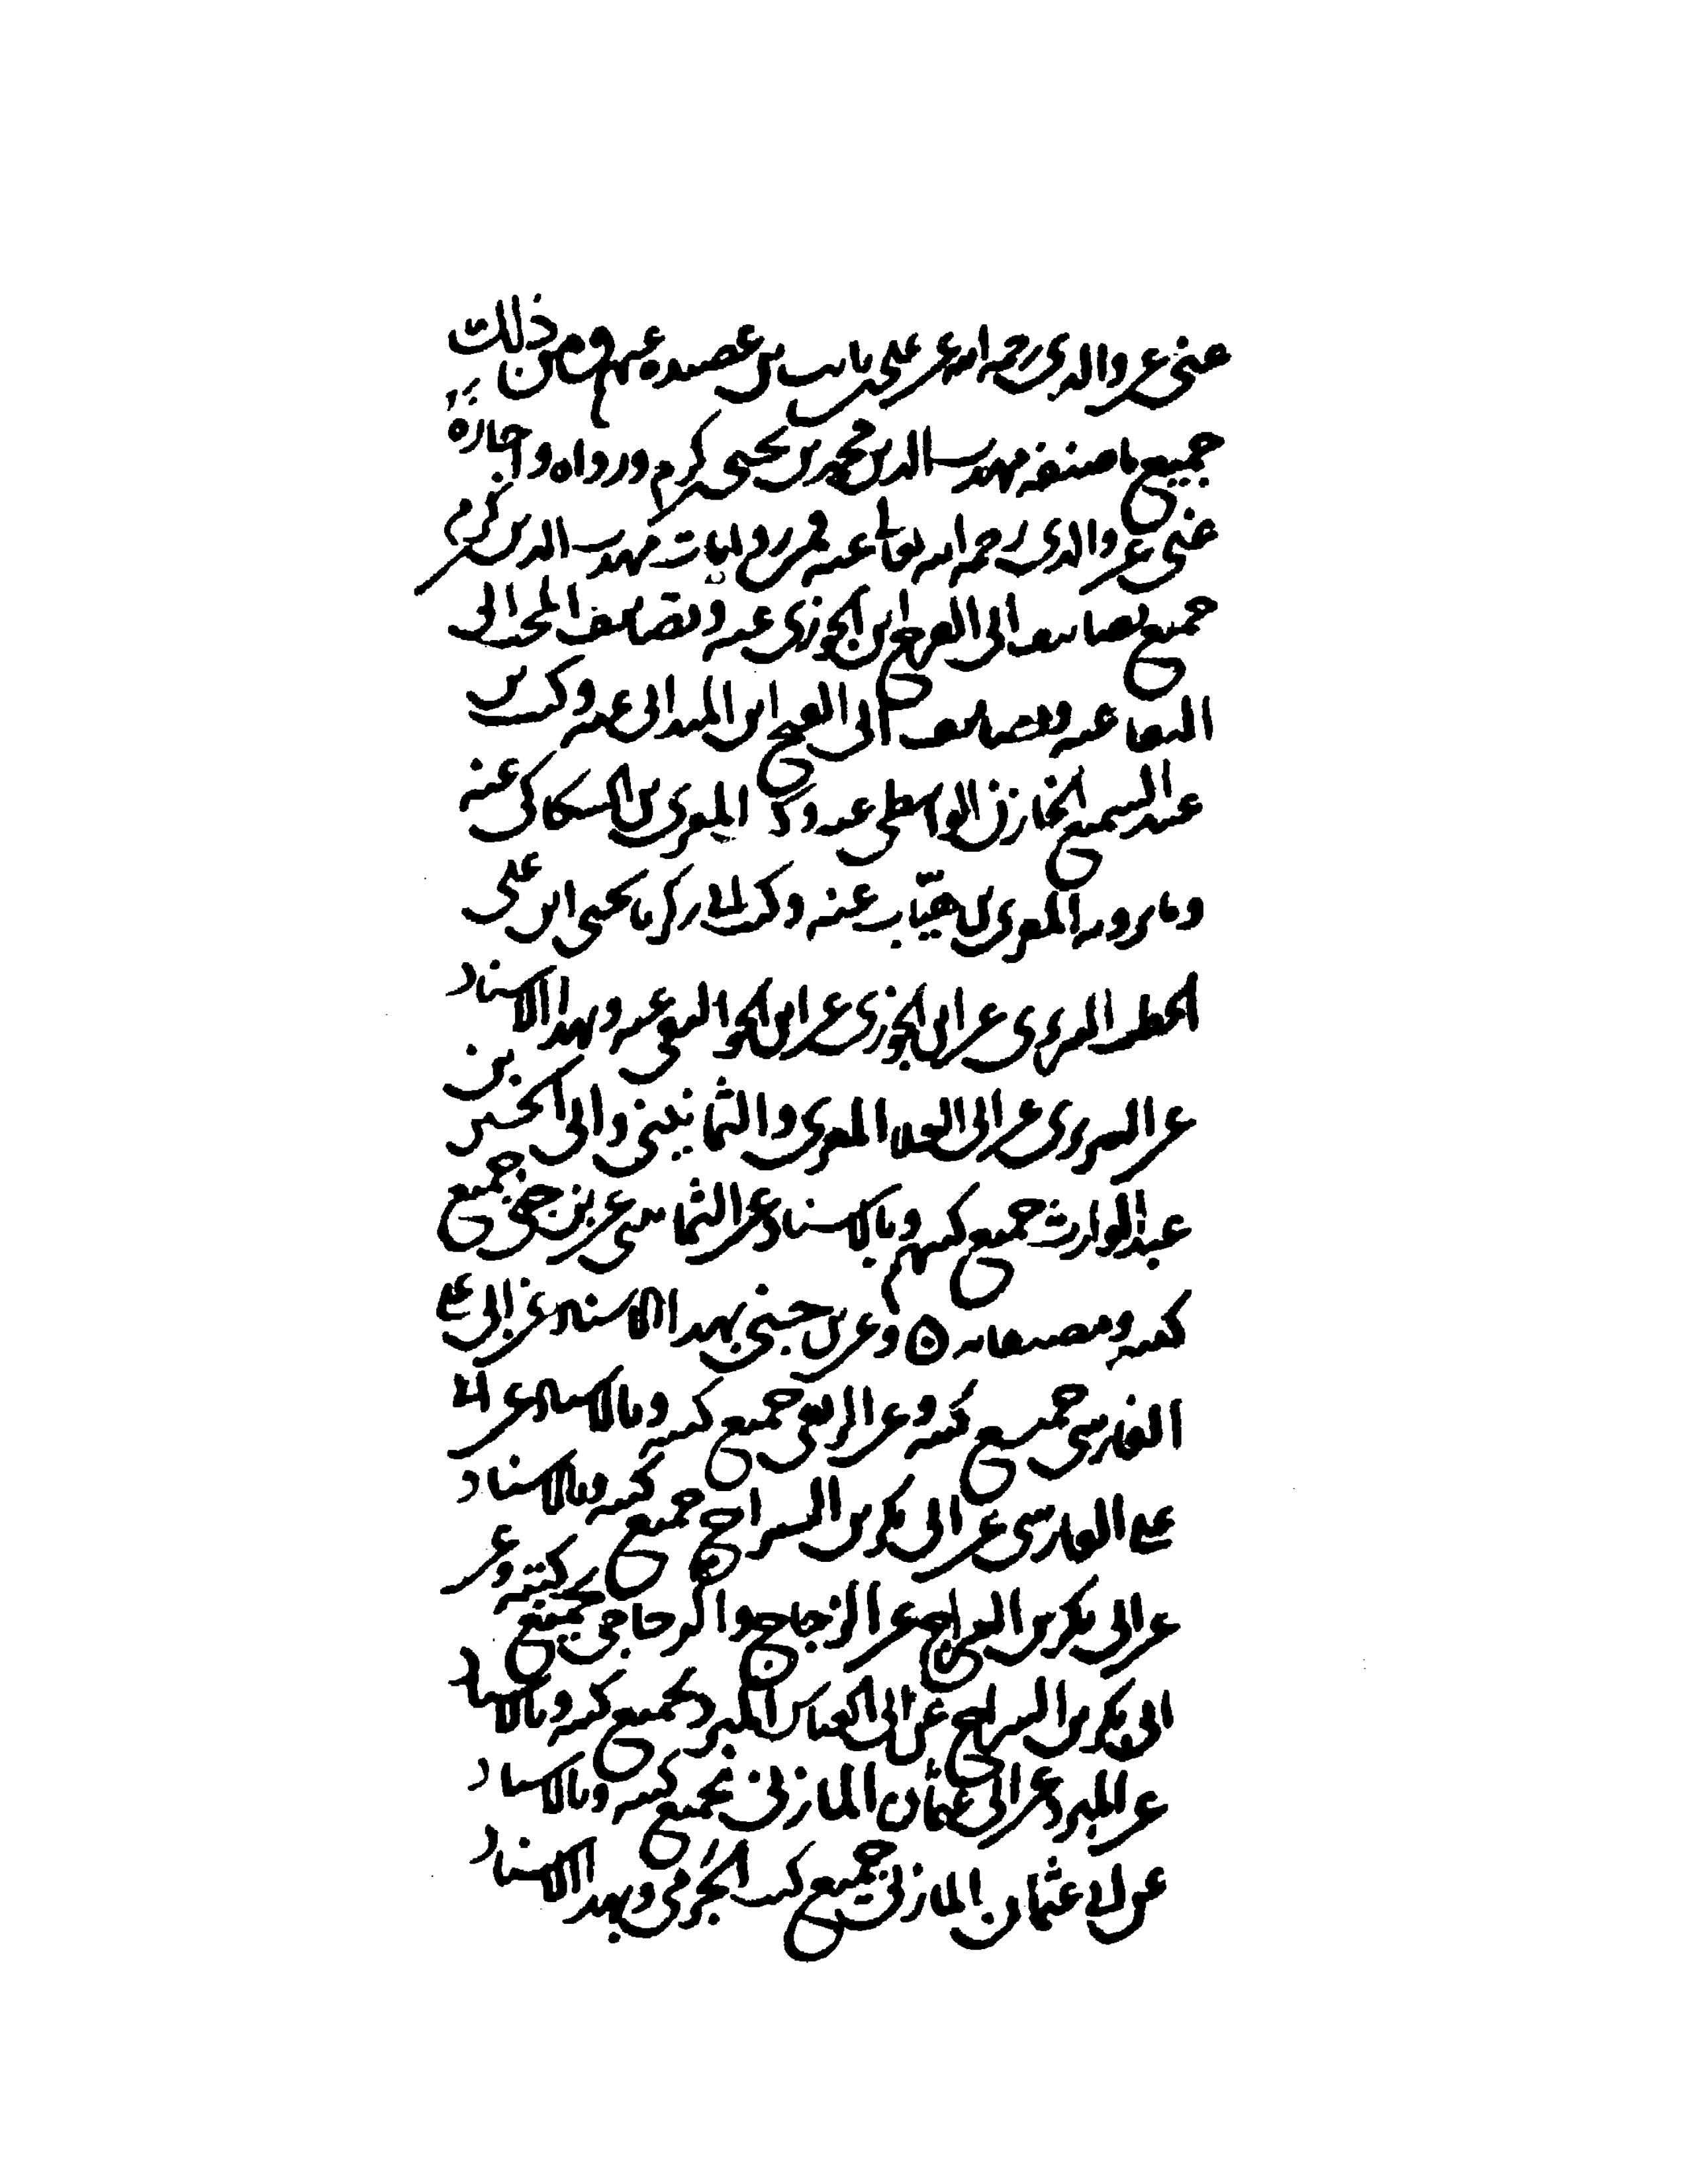 عني عن والدي رحمه الله عن علي بن ثابت بن عصيده عنهم ومن ذلك
جميع ما صنفه مهذب الدين محمد بن يحيى كرم ورواه واجازه
عني عن والدي رحمه الله تعالى عنه فمن روايات مهذب الدين كرم
جميع تصانيف ابي الفرج ابن الجوزي عنه وتصانيف المحب ابي
البقا عنه وتصانيف ابي الفتح ابن الميداني عنه وكتب بن
عبد السميع الخازن الواسطي عنه وكذا المعري بن السكاكي عنه
وما يرويه المعري بن هيّاب عنه وكذا لابي زكريا يحيى ابن علي
الخطيب التبريزي عن ابن الجوزي عن ابن الجواليقي عنه وبهذا الاسناد
عن التبريزي عن ابي العلا المعري والثمانيني وابي الحسين بن
عبد الوارث جميع كتبهم وبالاسناد عن الثمانيني عن بن جني جميع
كتبه ومصنفاته ۞ وعن بن جني بهذا الاسناد عن ابي علي
الفارسي جميع كتبه وعن الربعي جميع كتبه وبالاسناد عن ابي
علي الفارسي عن ابي بكر بن السراج جميع كتبه وبالاسناد
عن ابي بكر بن السراج عن الزجاج والزجاجي جميع كتبه وعن
ابي بكر بن السراج عن ابي العباس المبرد بجميع كتبه وبالاسناد
عن المبرد عن ابي عثمان المازني بجميع كتبه وبالاسناد
عن ابي عثمان المازني جميع كتب الجرمي وبهذا الاسناد